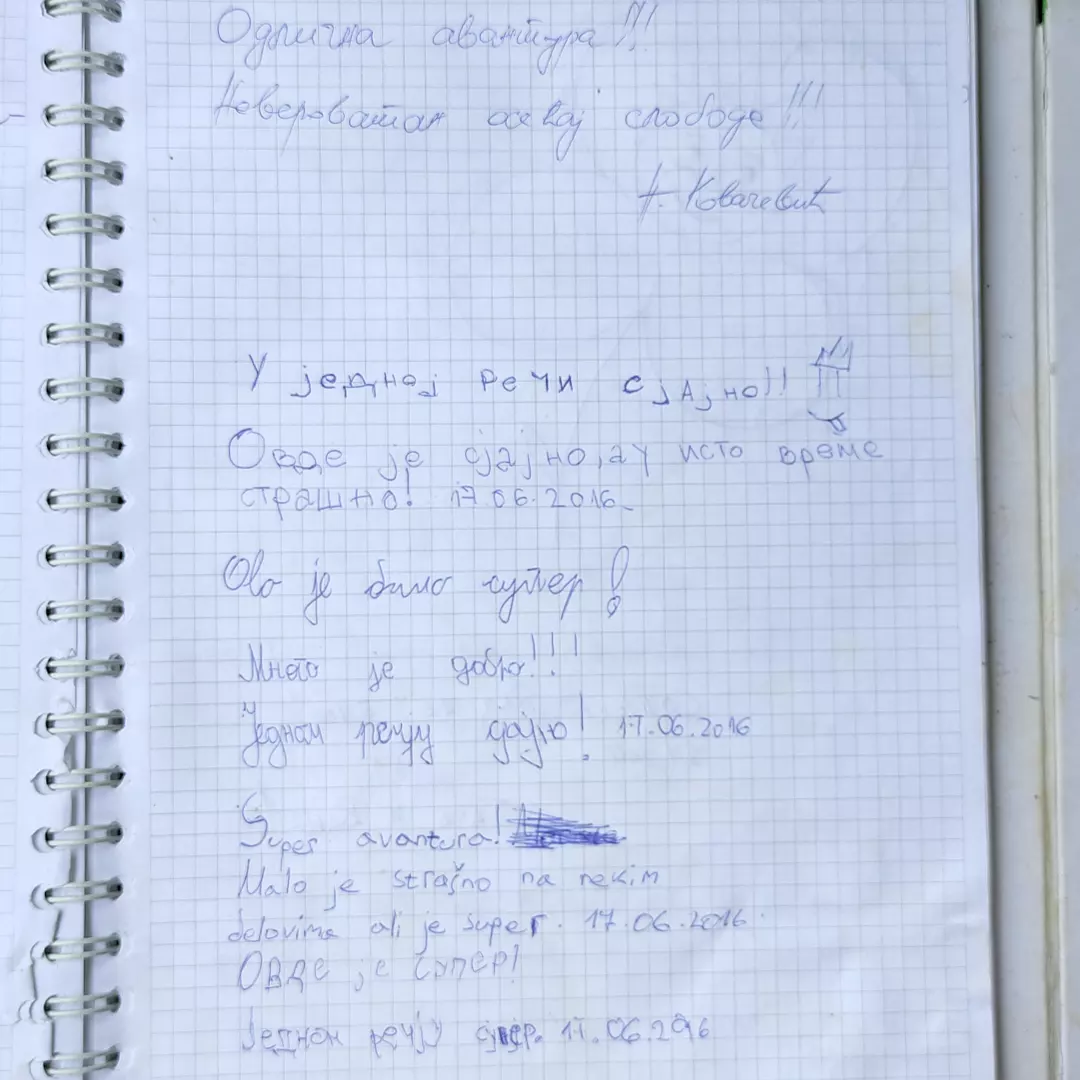 Одлична авантура!!!
Невероватан осећај слободе!!!
Ковачевић
У једној речи сјајно!!
Овде је сјајно, а у исто време
страшно! 17.06.2016.
Ово је било супер!
Много је добро!!!
Једном речју сјајно! 17.06.2016
Super avantura!
Malo je strašno na nekim
delovima ali je super. 17.06.2016.
ОВДЕ је СУПЕР!
Једном речју супер. 17.06.2016